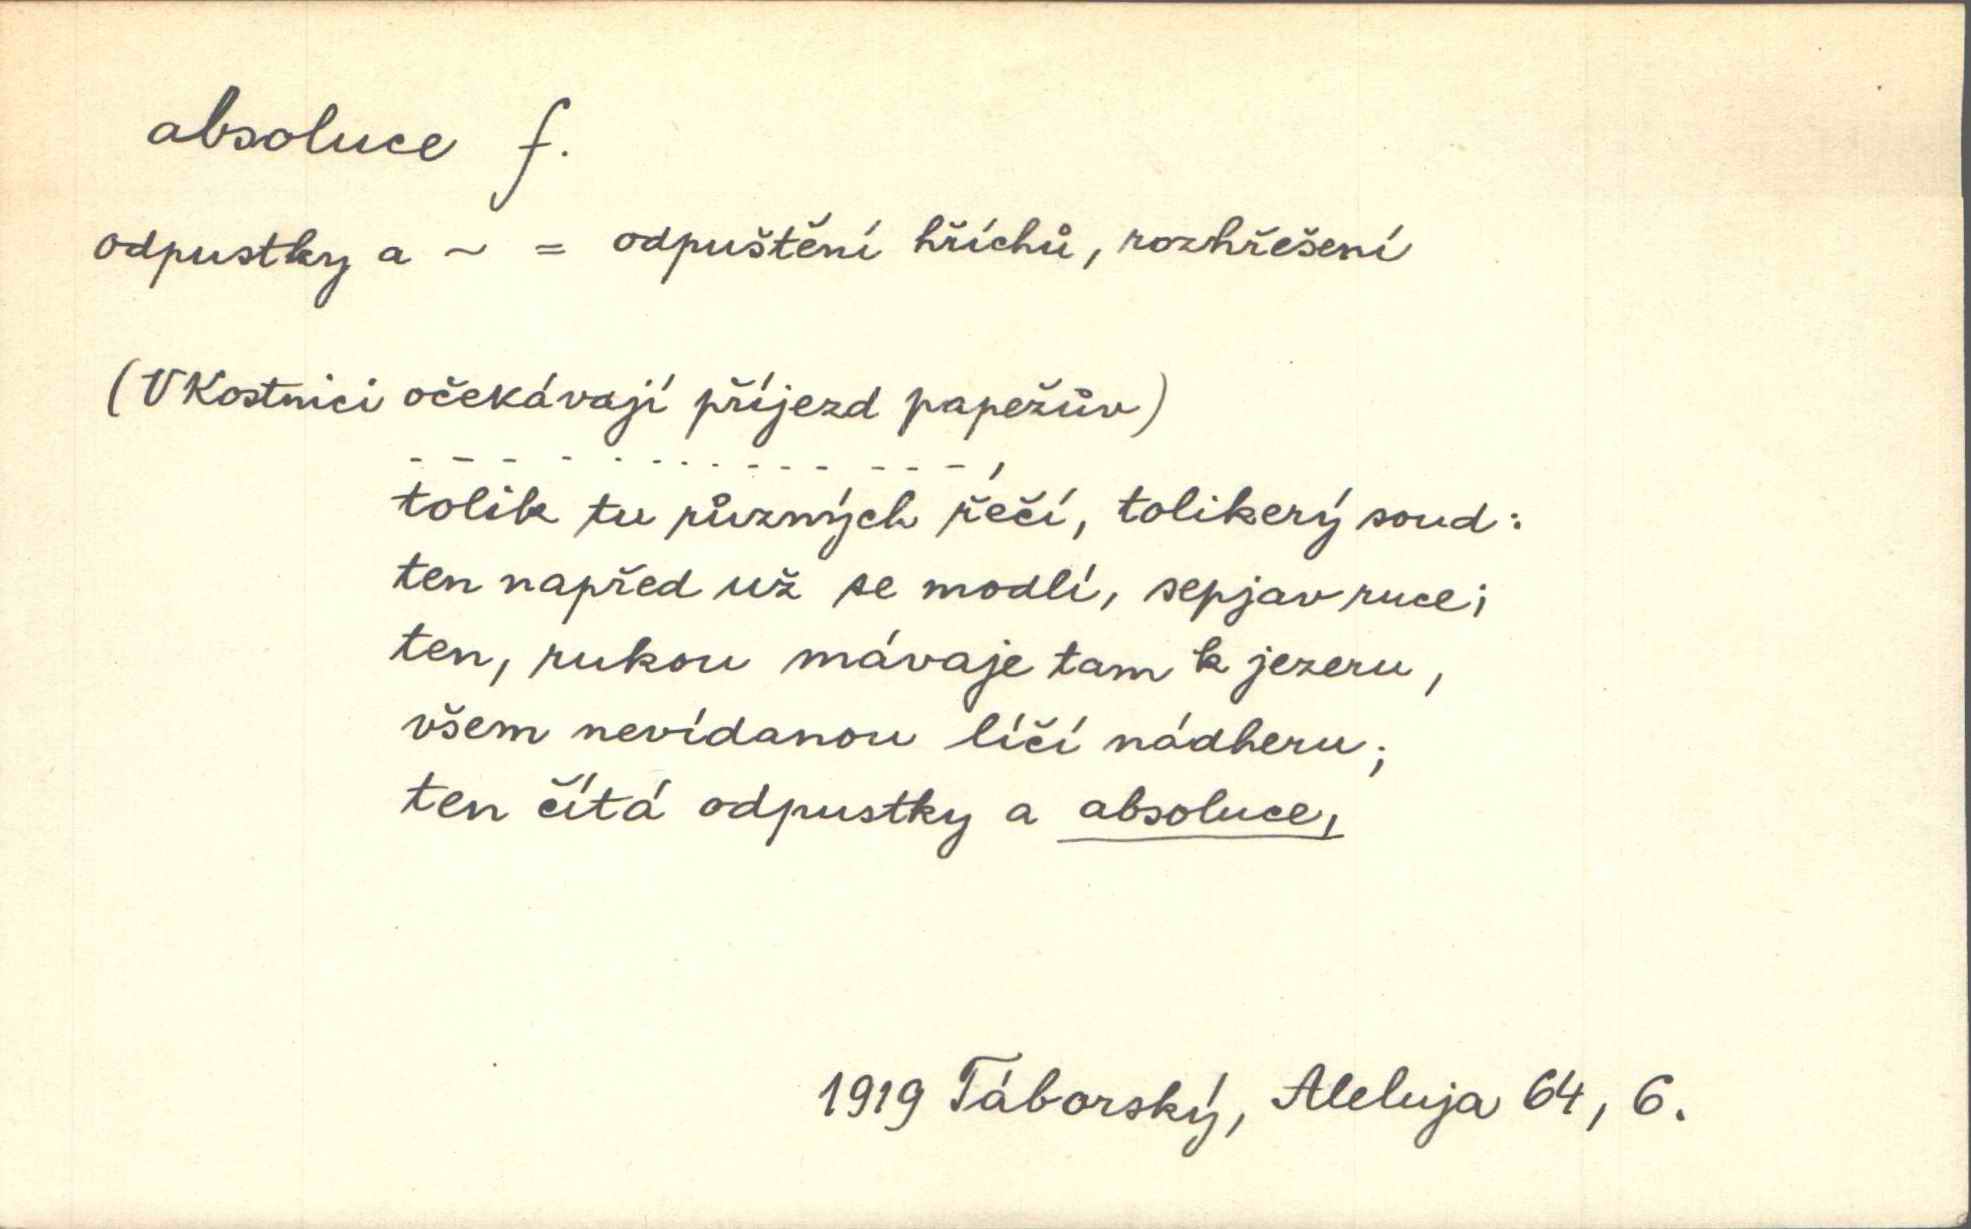 absoluce f.
odpustky a ~ = odpuštění hříchů, rozhřešení
(V Kostnici očekávají příjezd papežův)
- - - - - - - - - - - - - - - - -,
tolik tu různých řečí, tolikerý soud:
ten napřed už se modlí, sepjav ruce;
ten, rukou mávaje tam k jezeru,
všem nevídanou líčí nádheru;
ten čítá odpustky a absoluce,
1919 Táborský, Aleluja 64, 6.